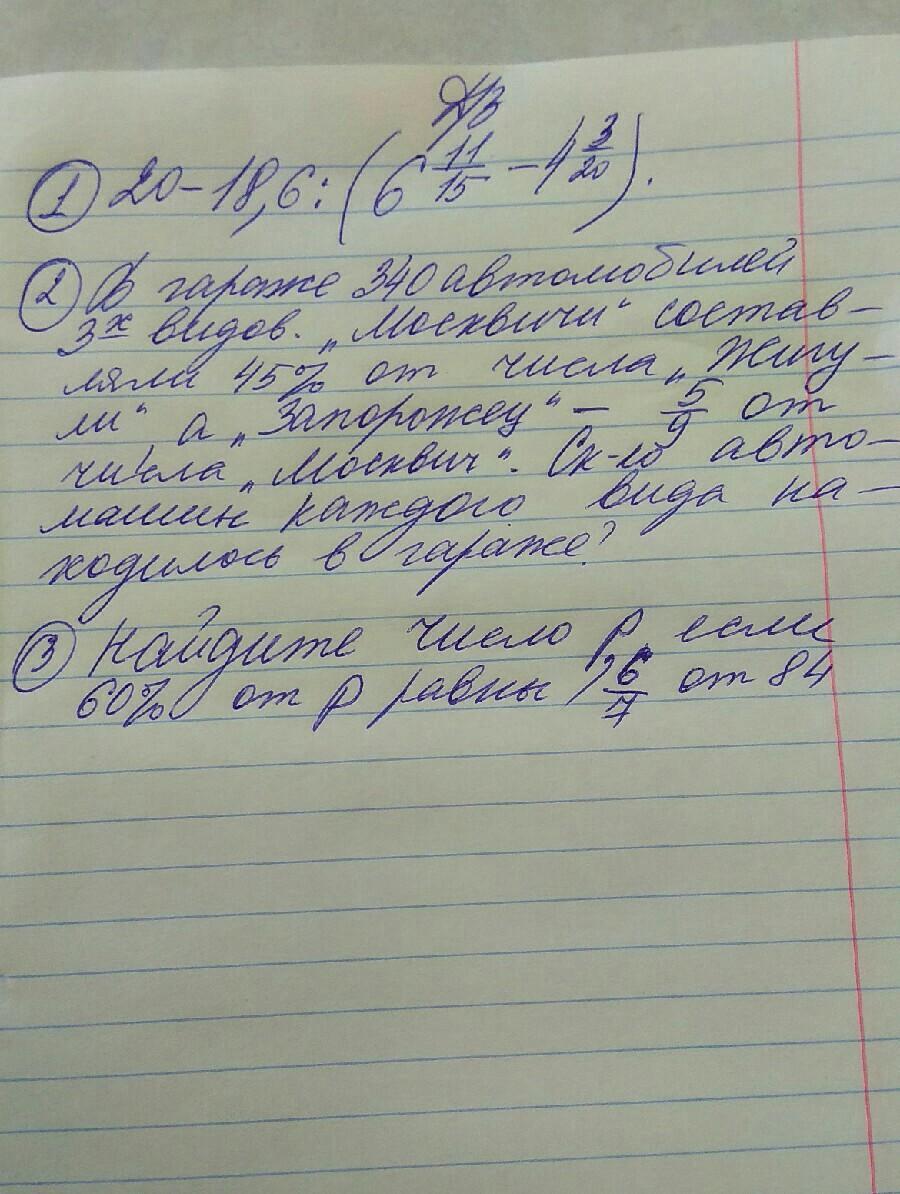 Д/З
① 20 - 18,6 : (6 11/15 - 4 3/20).
② В гараже 340 автомобилей
3х видов. „Москвичи“ состав-
ляли 45% от числа „Жигу-
ли“, а „Запорожец“ - 5/9 от
числа „Москвич“. Ск-ко авто-
машин каждого вида на-
ходилось в гараже?
③ Найдите число p, если
60% от p равны 6/7 от 84